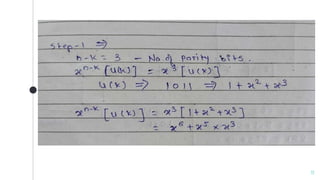 Step-1 ⇒
n-k = 3 - No. of parity bits.
xⁿ⁻ᵏ [u(x)] = x³ [u(x)]
u(x) ⇒ 1011 ⇒ 1 + x² + x³
xⁿ⁻ᵏ [u(x)] = x³ [1 + x² + x³]
= x⁶ + x⁵ + x³